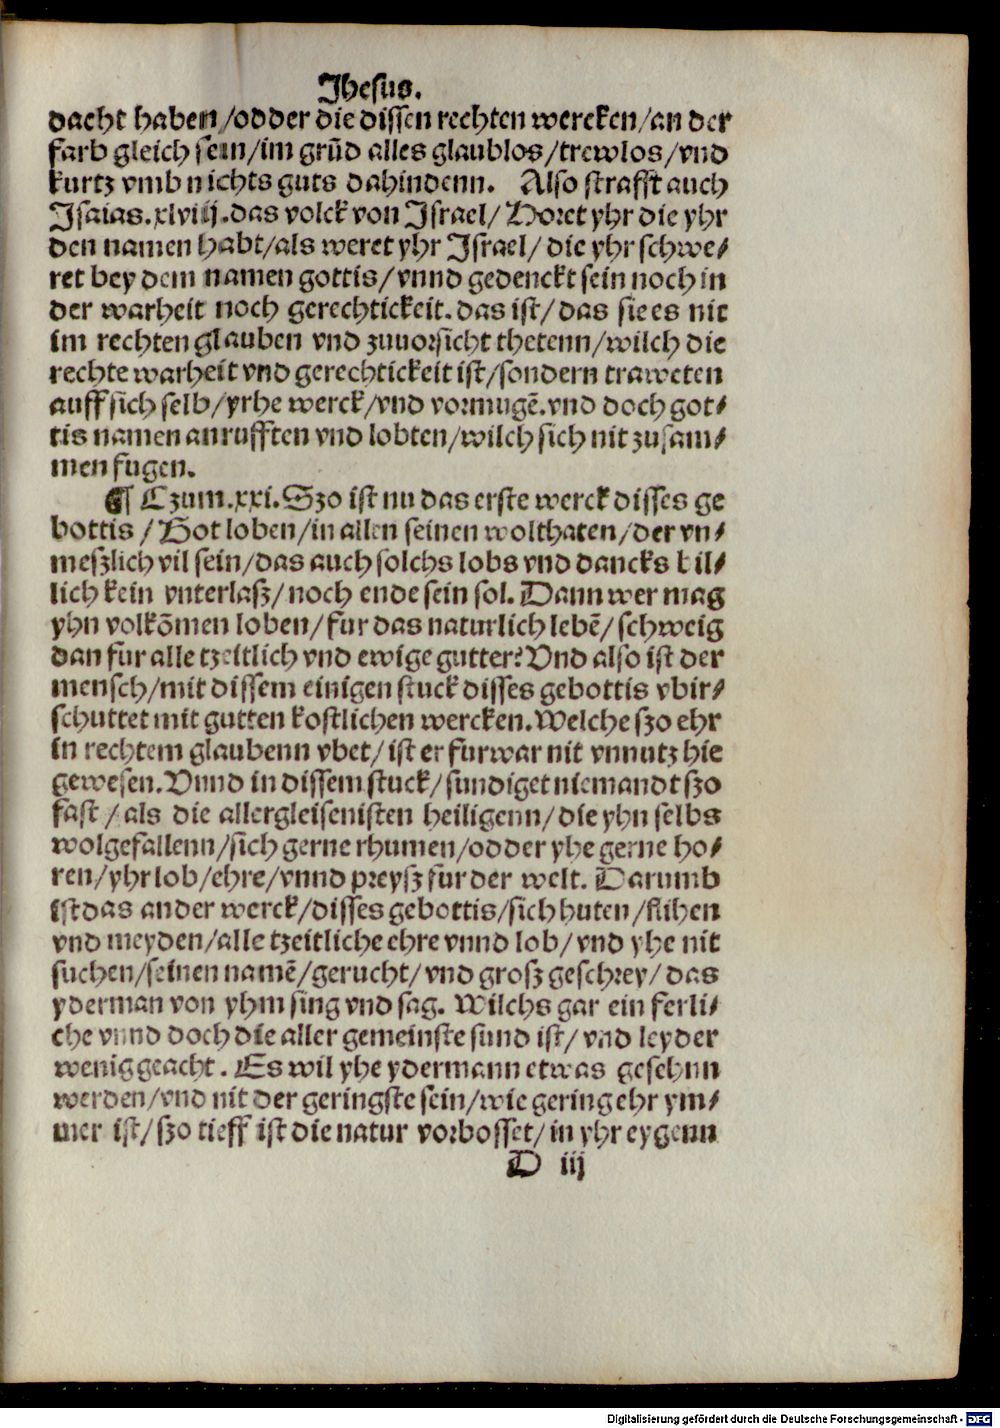 Jhesus.
dacht haben/odder die dissen rechten wercken/an der
farb gleich sein/im grūd alles glaublos/trewlos/vnd
kurtz vmb nichts guts dahindenn. Also strafft auch
Jsaias.xlviij.das volck von Jsrael/Horet yhr die yhr
den namen habt/als weret yhr Jsrael/die yhr schwe⸗
ret bey dem namen gottis/vnnd gedenckt sein noch in
der warheit noch gerechtickeit.das ist/das sie es nit
im rechten glauben vnd zuuorsicht thetenn/wilch die
rechte warheit vnd gerechtickeit ist/sondern traweten
auff sich selb/yrhe werck/vnd vormugē.vnd doch got⸗
tis namen anrufften vnd lobten/wilch sich nit zusam⸗
men fugen.
¶ Czum.xxi.Szo ist nu das erste werck disses ge
bottis/Got loben/in allen seinen wolthaten/der vn⸗
meszlich vil sein/das auch solchs lobs vnd dancks bil⸗
lich kein vnterlasz/noch ende sein sol.Dann wer mag
yhn volkōmen loben/fur das naturlich lebē/schweig
dan fur alle tzeitlich vnd ewige gutter?Vnd also ist der
mensch/mit dissem einigen stuck disses gebottis vbir⸗
schuttet mit gutten kostlichen wercken.Welche szo ehr
in rechtem glaubenn vbet/ist er furwar nit vnnutz hie
gewesen.Vnnd in dissem stuck/sundiget niemandt szo
fast/als die allergleisenisten heiligenn/die yhn selbs
wolgefallenn/sich gerne rhumen/odder yhe gerne ho⸗
ren/yhr lob/ehre/vnnd preysz fur der welt. Darumb
ist das ander werck/disses gebottis/sich huten/flihen
vnd meyden/alle tzeitliche ehre vnnd lob/vnd yhe nit
suchen/seinen namē/gerucht/vnd grosz geschrey/das
yderman von yhm sing vnd sag. Wilchs gar ein ferli⸗
che vnnd doch die aller gemeinste sund ist/vnd leyder
wenig geacht. Es wil yhe ydermann etwas gesehnn
werden/vnd nit der geringste sein/wie gering ehr ym⸗
mer ist/szo tieff ist die natur vorbosset/in yhr eygenn
D iij
Digitalisierung gefördert durch die Deutsche Forschungsgemeinschaft - DFG